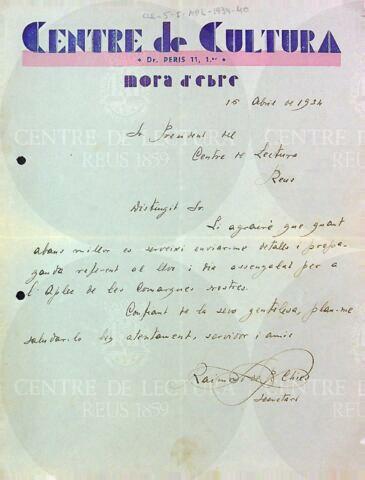 CLR-5-I-NPL-1934-40
CENTRE de CULTURA
• Dr. PERIS 11, 1.er •
mora d'ebre
15 Abril de 1934
Sr President del
Centre de Lectura
Reus
Distingit Sr.
Li agrairé que quant
abans millor es serveixi enviar-me detalls i propa-
ganda referent al lloc i dia assenyalat per a
l'Aplec de les Comarques nostres.
Confiant de la seva gentilesa, plau-me
saludar-lo atentament, servidor i amic
Raimond
Secretari
CENTRE DE LECTURA
REUS 1859